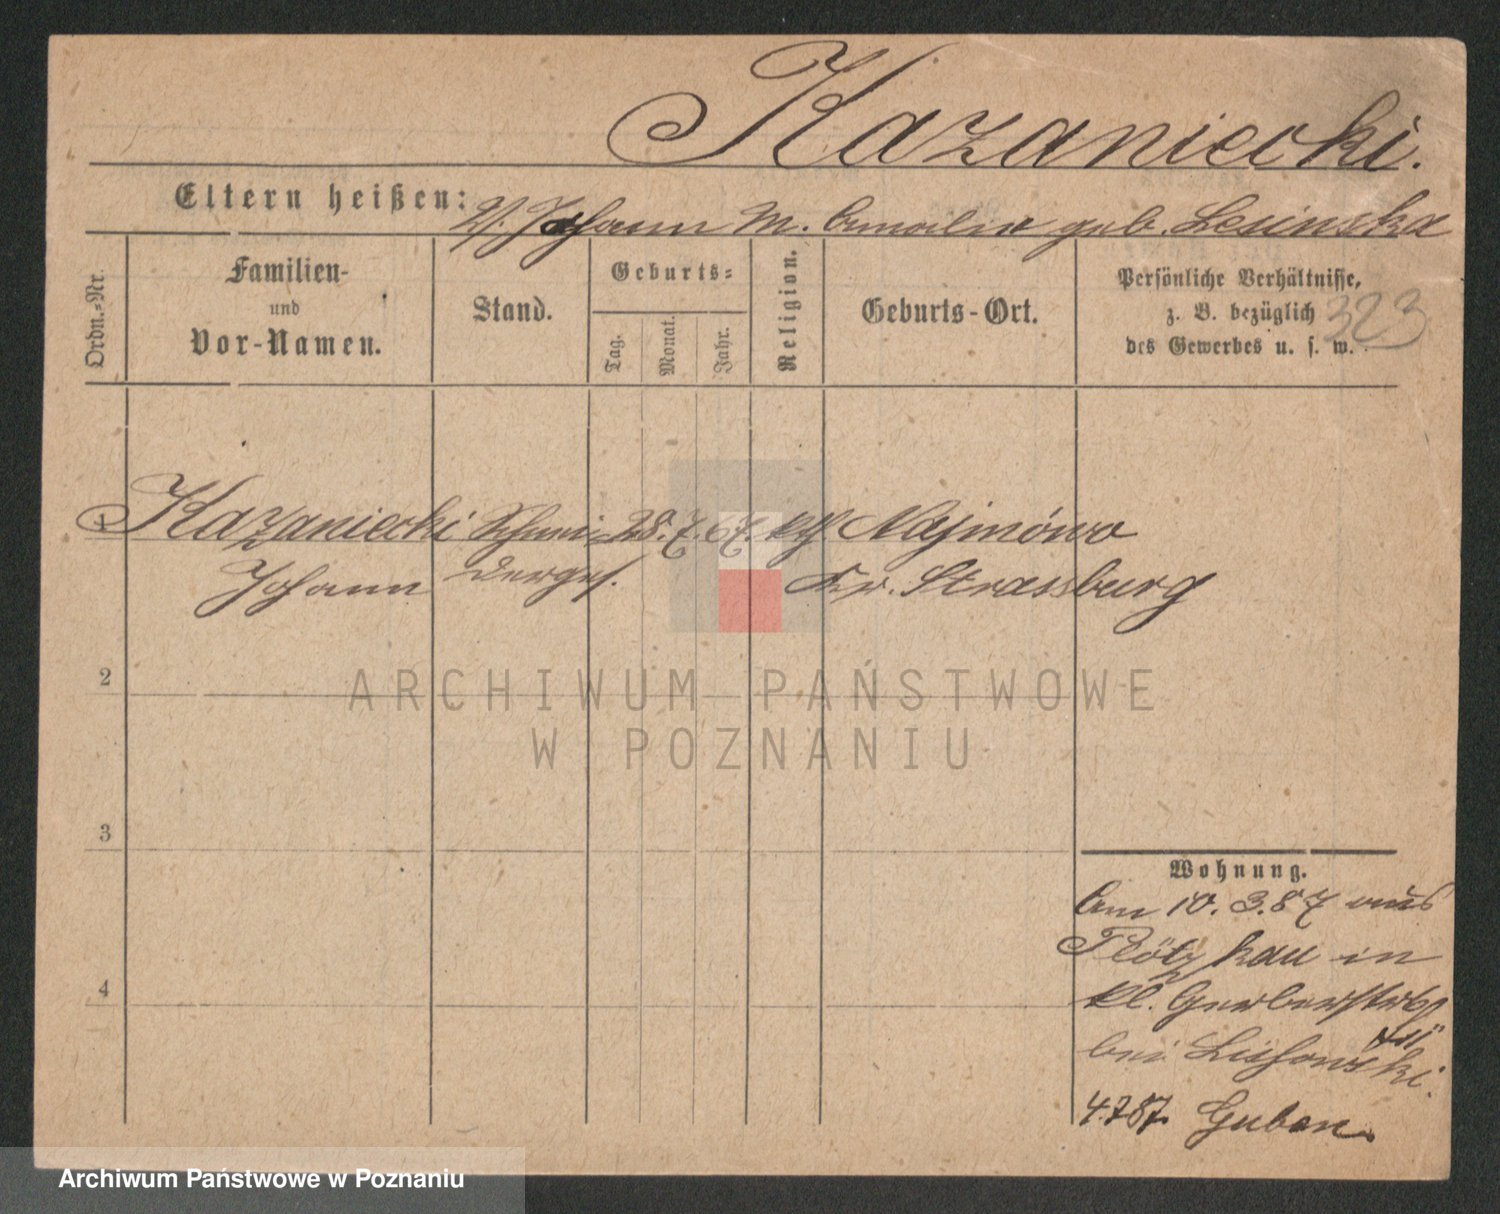 Kazaniecki.
Eltern heißen: V. Johann M. Amalie geb. Lesinska
Ordn.-Nr.
Familien-
und
Vor-Namen.
Stand.
Geburts-
Tag.
Monat.
Jahr.
Religion.
Geburts-Ort.
Persönliche Verhältnisse,
z. B. bezüglich
des Gewerbes u. s. w.
323
1 Kazaniecki Schmi- 28. 7. 67. kth Najmówo
Johann derges. Kr. Strassburg
ARCHIWUM PAŃSTWOWE
W POZNANIU
2
3
4
Wohnung.
Am 10. 3. 87 aus
Plötzkau in
kl. Gerberstr
bei
4.7 87. Guben.
Archiwum Państwowe w Poznaniu